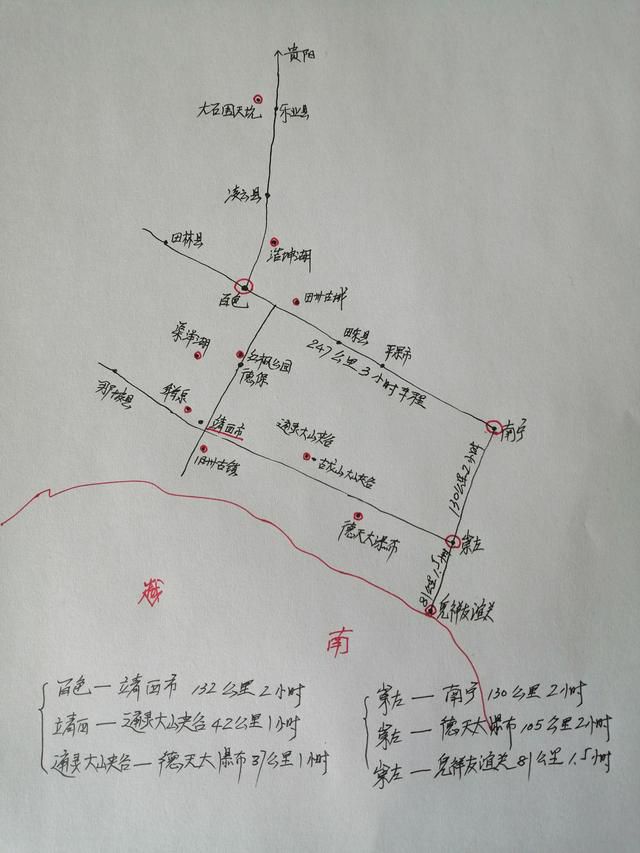 贵阳
大石围天坑
乐业县
凌云县
田林县
浩坤湖
百色
田州古城
田东县
平果市
247公里3小时车程
渠洋湖
红枫公园
德保
那坡县
鹅泉
靖西市
通灵大峡谷
南宁
旧州古镇
古龙山大峡谷
130公里2小时
德天大瀑布
崇左
81公里1.5小时
友谊关
越
南
百色—靖西市 132公里2小时
靖西—通灵大峡谷42公里1小时
通灵大峡谷—德天大瀑布37公里1小时
崇左—南宁130公里2小时
崇左—德天大瀑布105公里2小时
崇左—凭祥友谊关81公里1.5小时